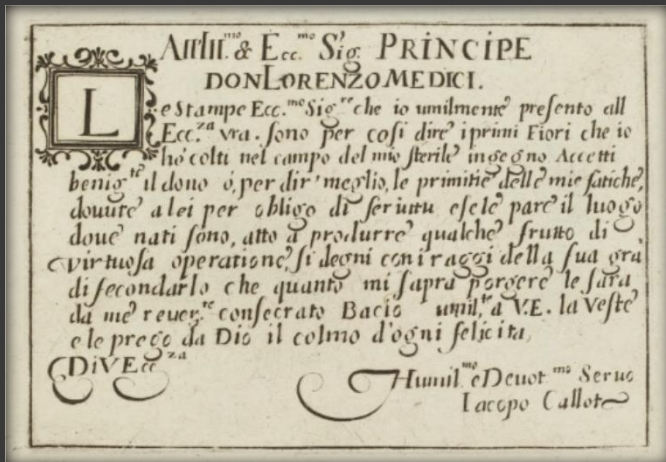 All Ill.mo & Ecc.mo Sig. PRINCIPE
DON LORENZO MEDICI.
Le Stampe Ecc.mo Sig.re che io umilmente presento all
Ecc.za vra. sono per cosi dire i primi Fiori che io
hò colti nel campo del mio sterile ingegno Accetti
benig.te il dono ó, per dir' meglio, le primitie delle mie fatiche,
dovute a lei per obligo di seruitu e se le pare il luogo
doue nati sono, atto à produrre qualche frutto di
virtuosa operatione, si degni con i raggi della sua gra
di secondarlo che quanto mi sapra porgere le sara
da me reuer.te consecrato Bacio umil.te a V.E. la veste
e le prego da Dio il colmo d'ogni felicita,
Di V Ecc.za
Humil.mo e Deuot.mo Seruo
Iacopo Callot